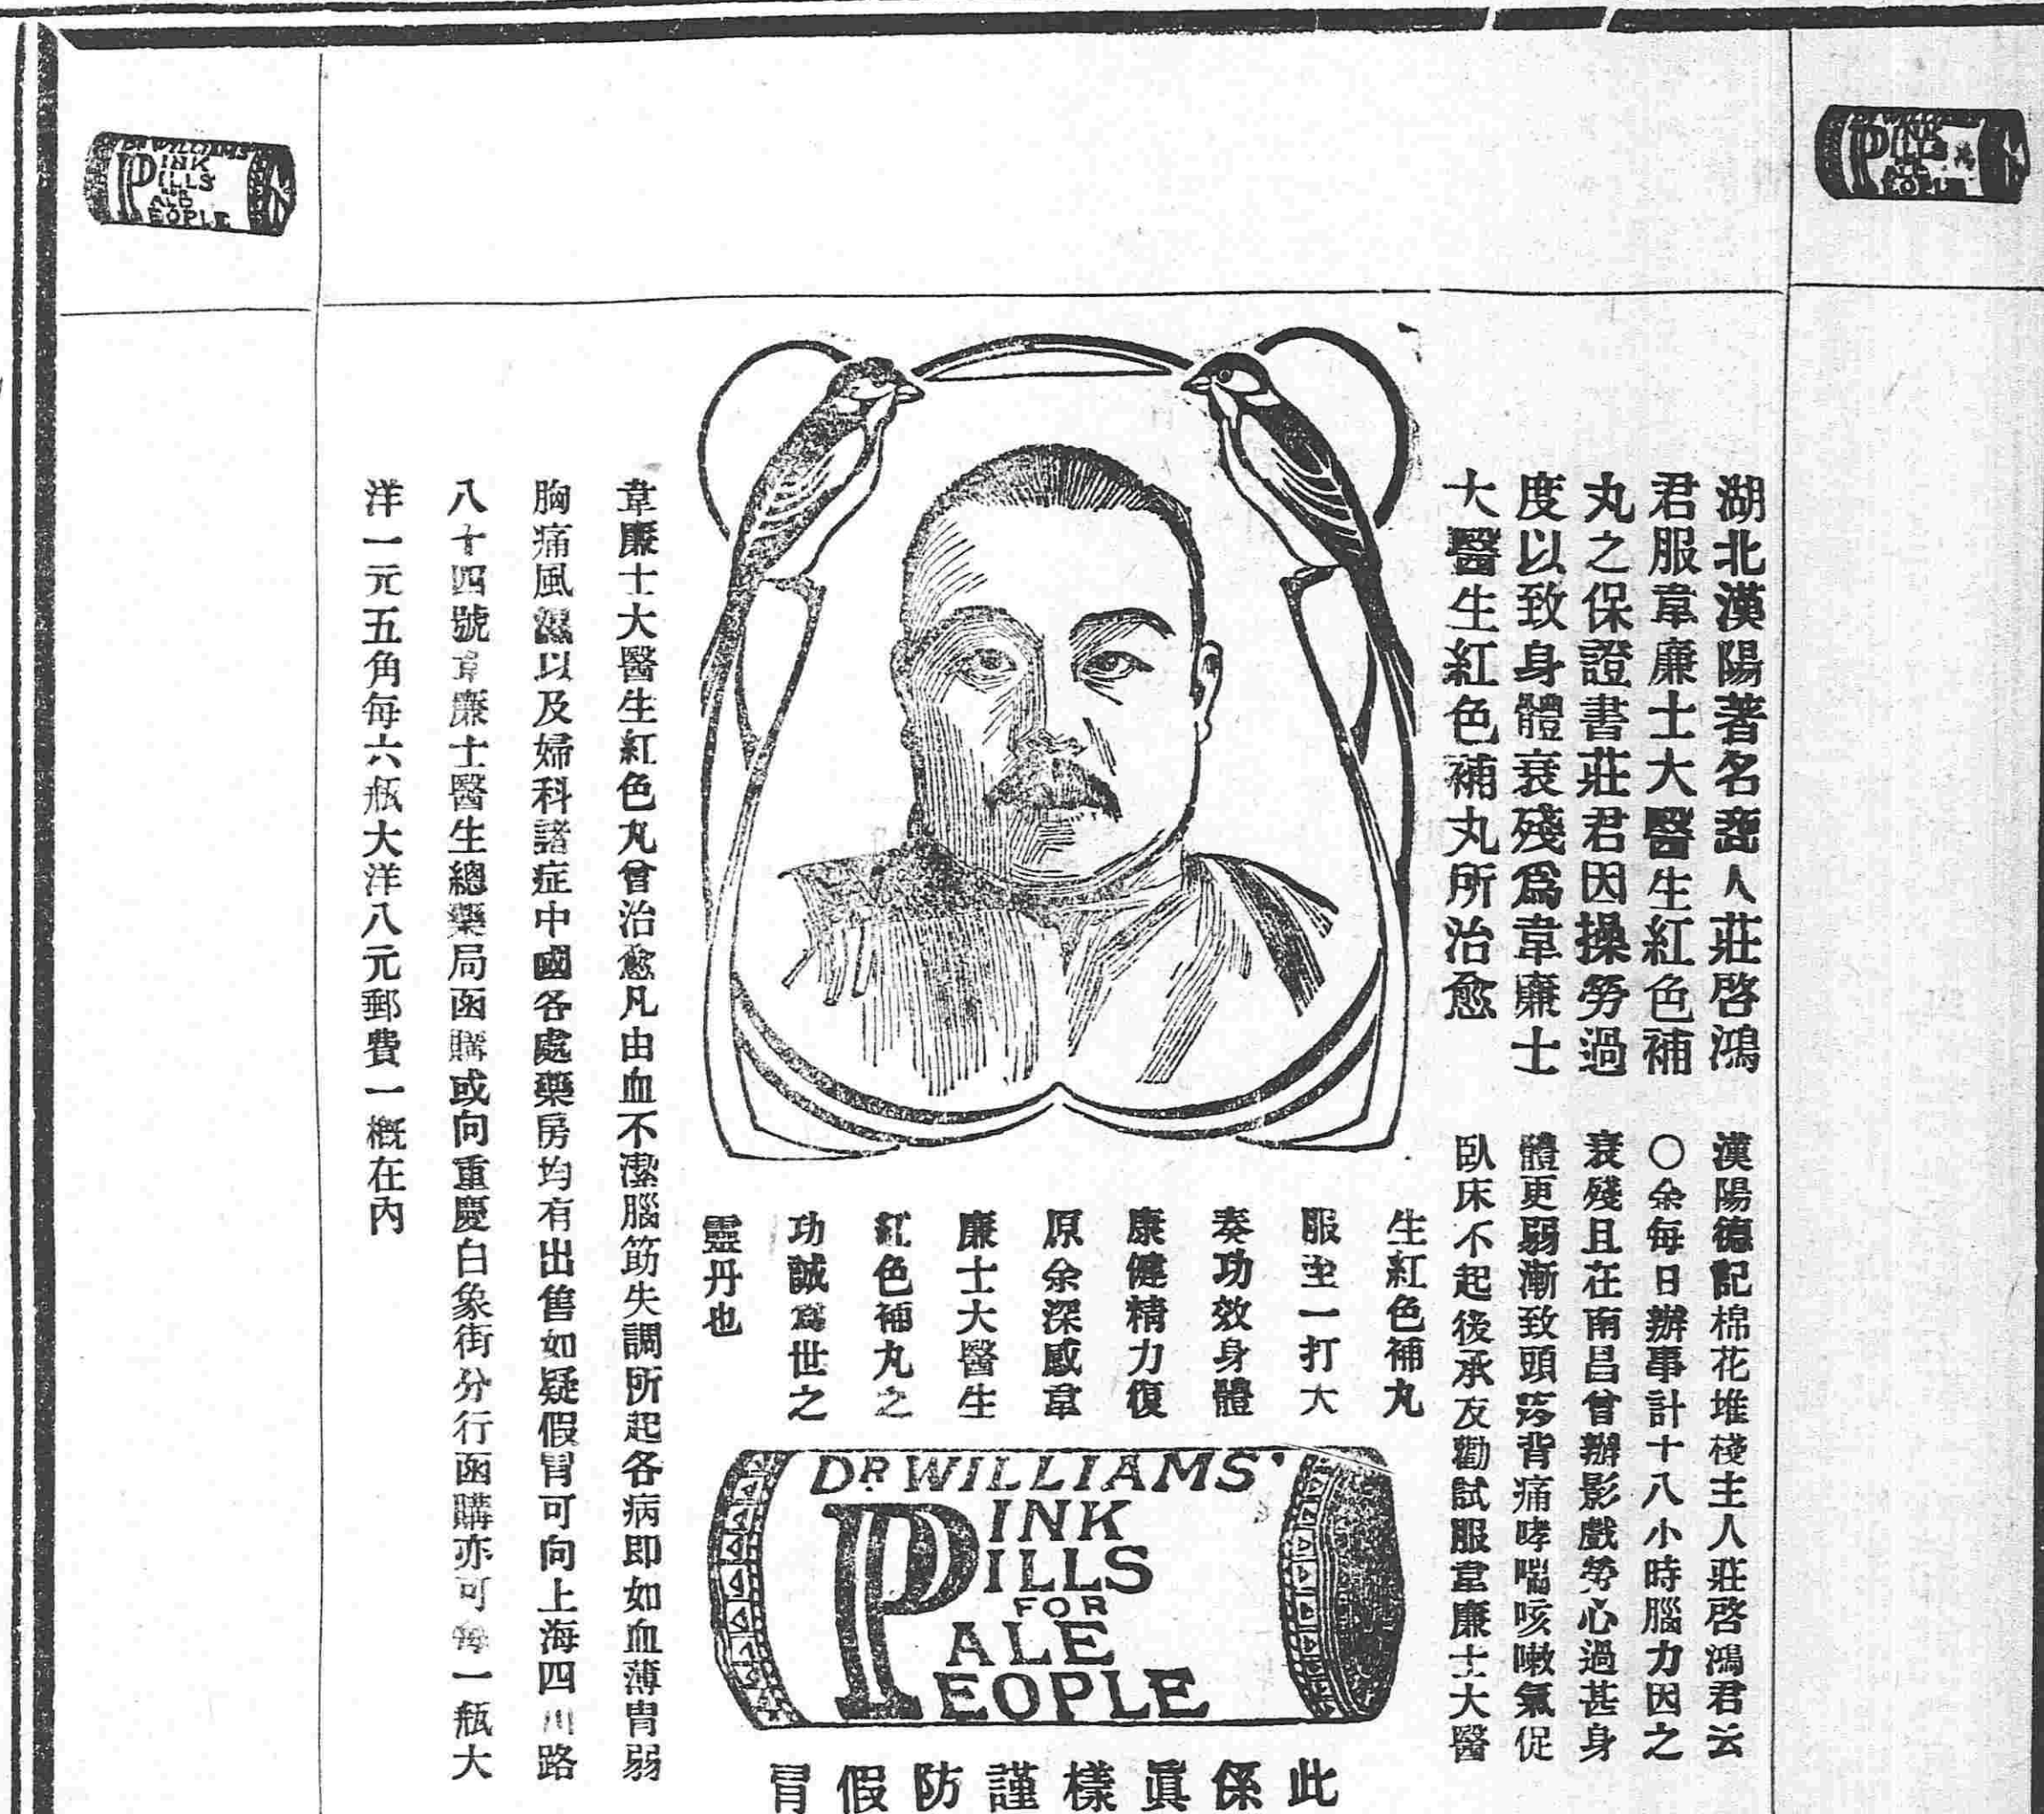 DR WILLIAMS'
PINK
PILLS
FOR
PALE
PEOPLE
DR WILLIAMS'
PINK
PILLS
PALE
PEOPLE
湖北漢陽著名商人莊啓鴻
君服韋廉士大醫生紅色補
丸之保證書莊君因操勞過
度以致身體衰殘爲韋廉士
大醫生紅色補丸所治愈
漢陽德記棉花堆棧主人莊啓鴻君云
〇余每日辦事計十八小時腦力因之
衰殘且在南昌曾辦影戲勞心過甚身
體更弱漸致頭背痛哮喘咳嗽氣促
臥床不起後承友勸試服韋廉士大醫
生紅色補丸
服至一打大
奏功效身體
康健精力復
原余深感韋
廉士大醫生
紅色補丸之
功誠爲世之
靈丹也
DR WILLIAMS'
PINK
PILLS
FOR
PALE
PEOPLE
此係眞樣謹防假冒
韋廉士大醫生紅色丸曾治愈凡由血不潔腦筋失調所起各病即如血薄胃弱
胸痛風濕以及婦科諸症中國各處藥房均有出售如疑假冒可向上海四川路
八十四號韋廉士醫生總藥局函購或向重慶白象街分行函購亦可每一瓶大
洋一元五角每六瓶大洋八元郵費一概在內